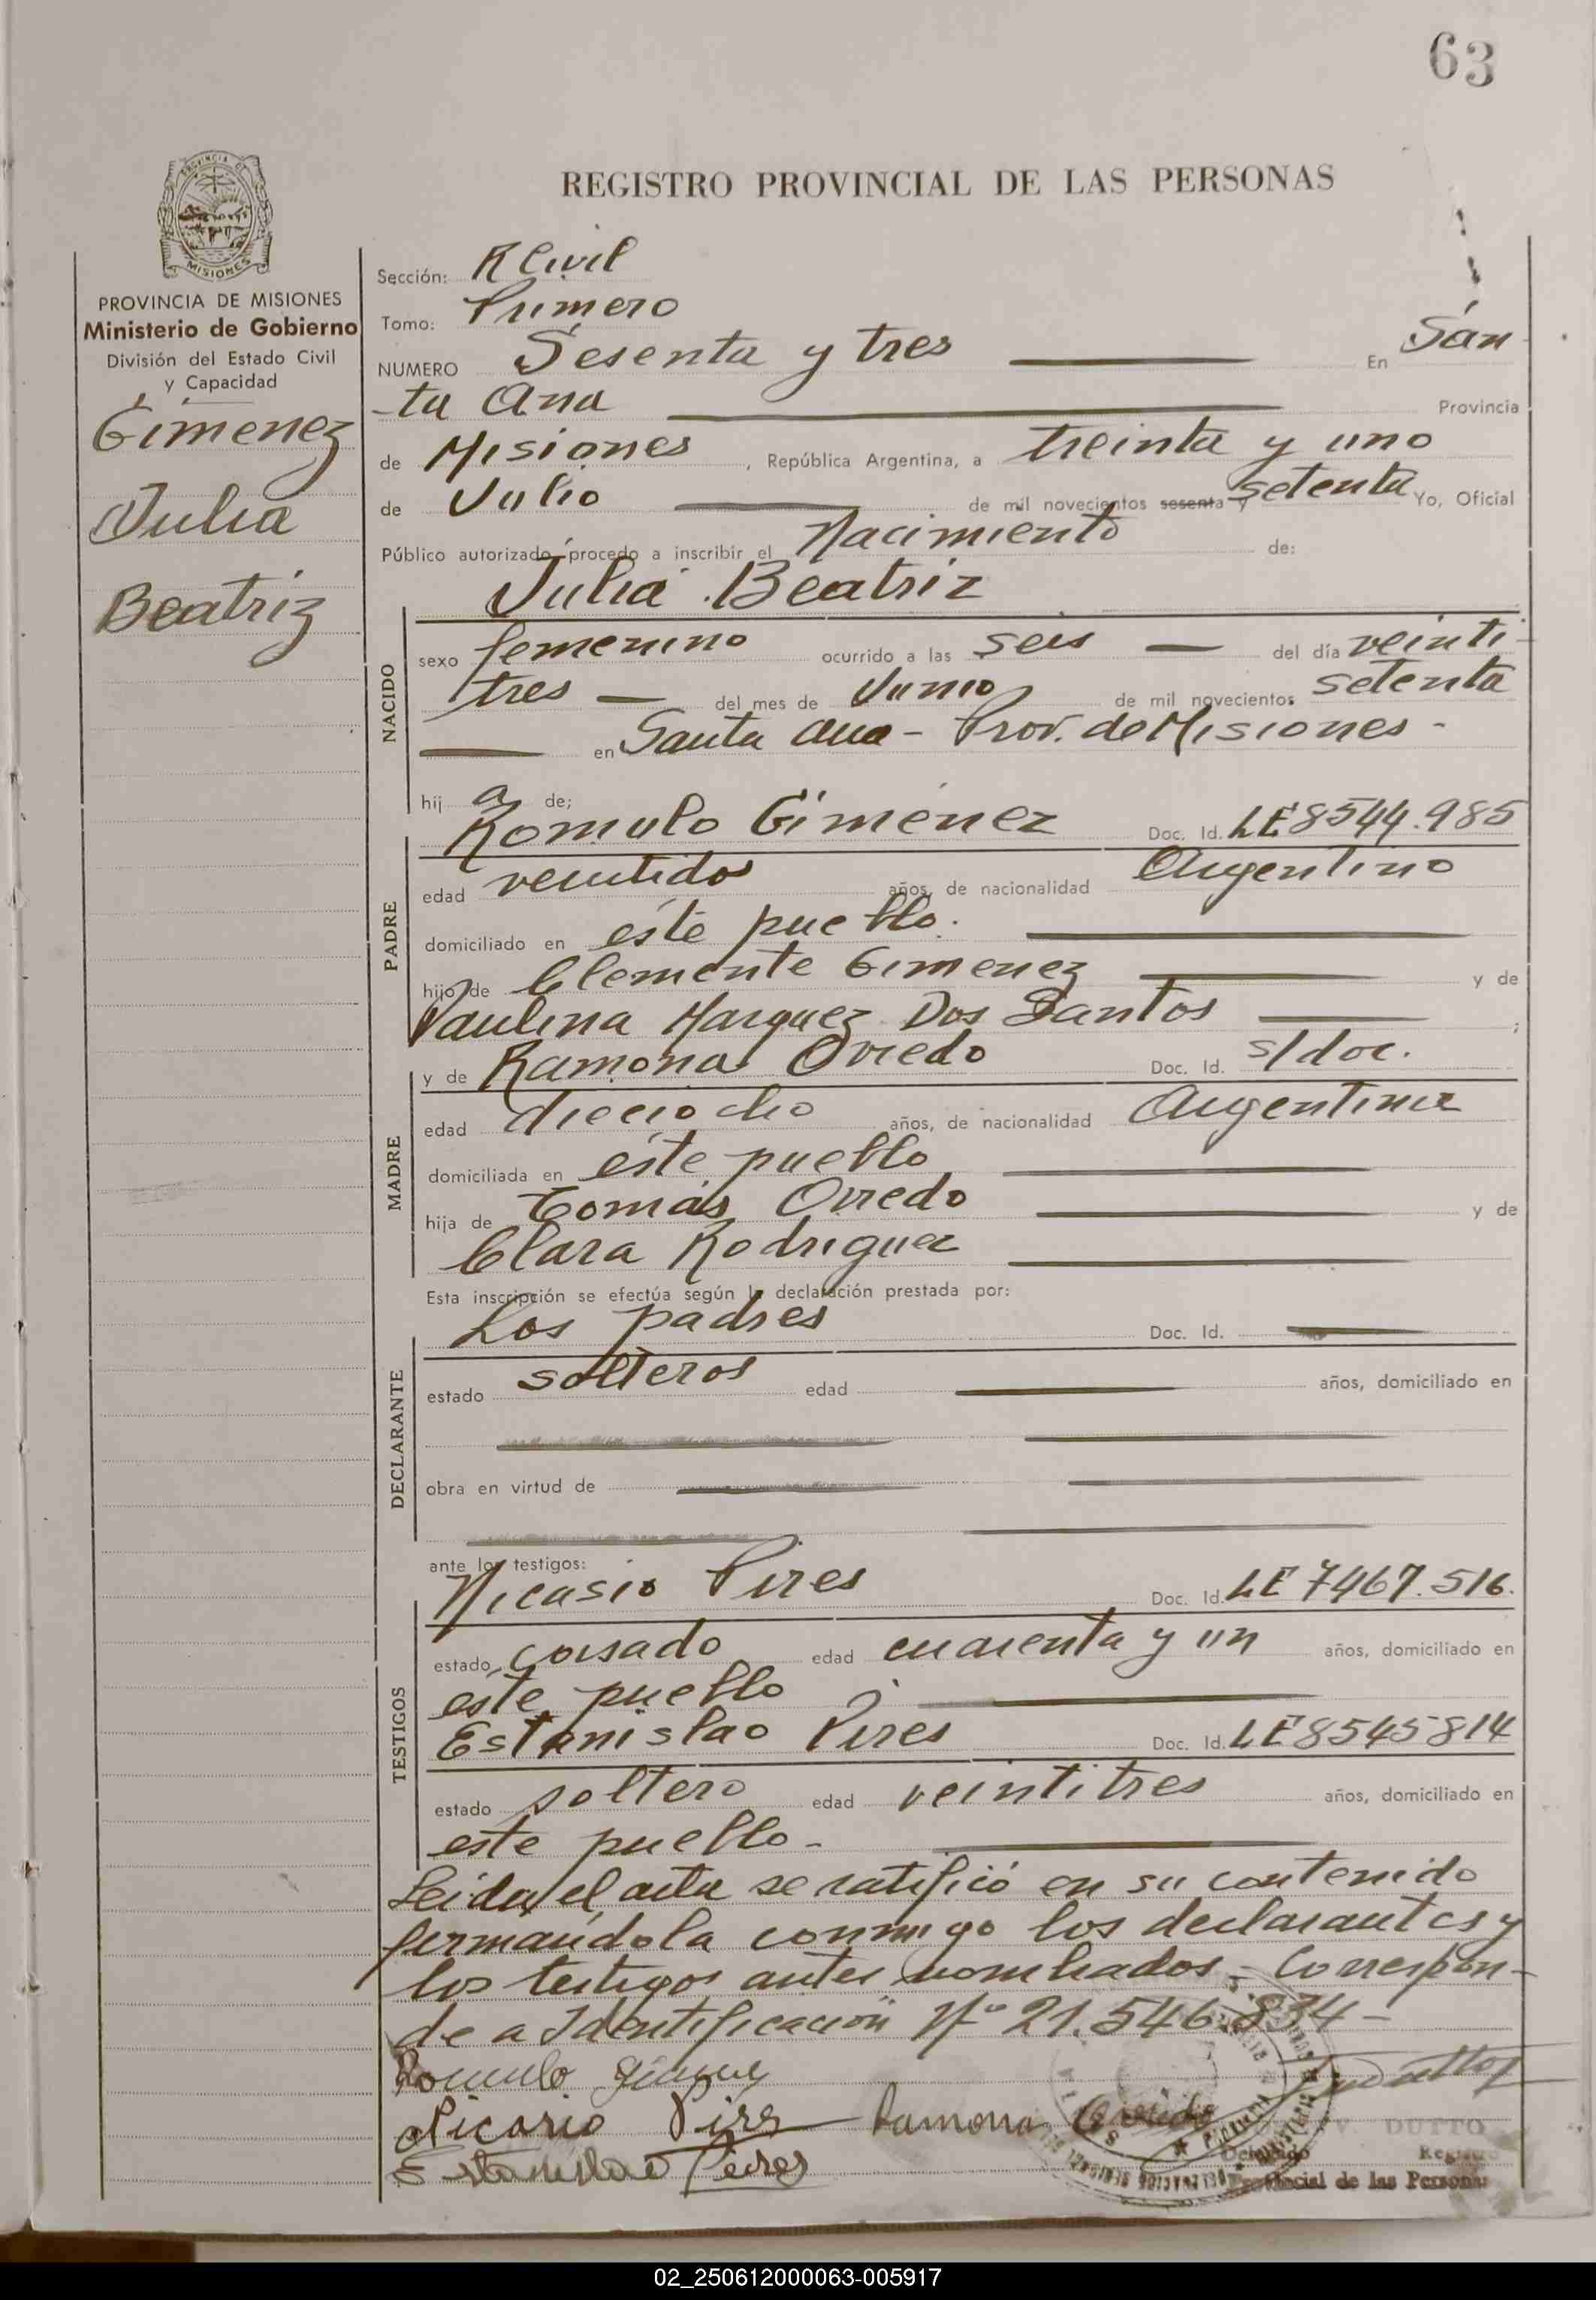 63
REGISTRO PROVINCIAL DE LAS PERSONAS
PROVINCIA DE
MISIONES
PROVINCIA DE MISIONES
Ministerio de Gobierno
División del Estado Civil
y Capacidad
Gimenez
Julia
Beatriz
Sección: R Civil
Tomo: Primero
NUMERO Sesenta y tres En San
-ta Ana Provincia
de Misiones, República Argentina, a treinta y uno
de Julio de mil novecientos sesenta y setenta Yo, Oficial
Público autorizado, procedo a inscribir el Nacimiento de:
Julia Beatriz
NACIDO
sexo femenino ocurrido a las seis del día veinti
tres del mes de Junio de mil novecientos setenta
en Santa Ana - Prov. de Misiones -
hij a de;
Romulo Giménez Doc. Id. LE 8544.985
PADRE
edad veintidos años, de nacionalidad Argentino
domiciliado en éste pueblo.
hijo de Clemente Gimenez y de
Paulina Marquez Dos Santos ;
y de Ramona Oviedo Doc. Id. s/doc.
MADRE
edad dieciocho años, de nacionalidad Argentina
domiciliada en éste pueblo
hija de Tomás Oviedo y de
Clara Rodriguez
Esta inscripción se efectúa según la declaración prestada por:
Los padres Doc. Id.
DECLARANTE
estado solteros edad años, domiciliado en
obra en virtud de
ante los testigos:
Nicasio Pires Doc. Id. LE 7467.516.
TESTIGOS
estado casado edad cuarenta y un años, domiciliado en
éste pueblo
Estanislao Pires Doc. Id. LE 8545814
estado soltero edad veintitres años, domiciliado en
este pueblo -
Leida el acta se ratificó en su contenido
firmandola conmigo los declarantes y
los testigos antes nombrados - Correspon-
de a Identificación Nº 21.546.834 -
Romulo Gimenez
Nicasio Pires Ramona Oviedo
Estanislao Pires
DUTTO
Delegado Registro
Provincial de las Personas
02_250612000063-005917